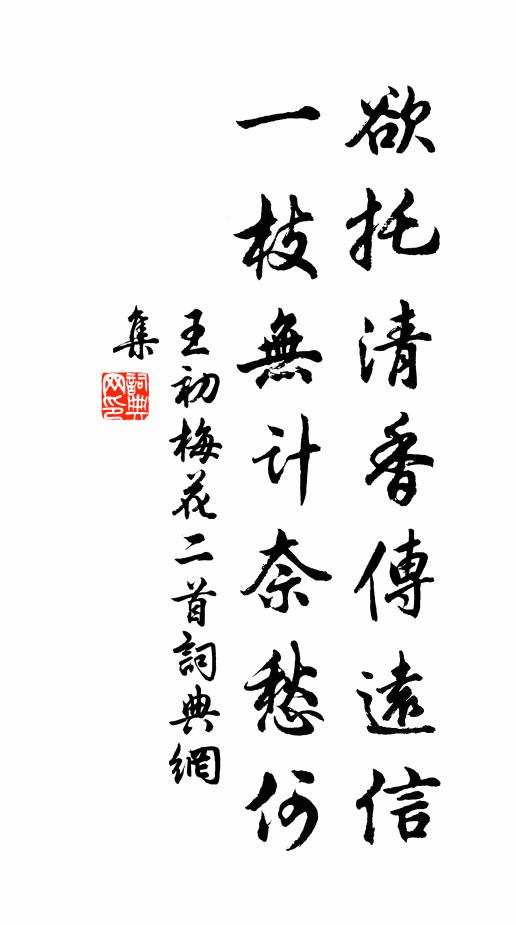 欲托清香傳遠信
一枝無計奈愁何
王初梅花二首詞典網
集
詞典
网印